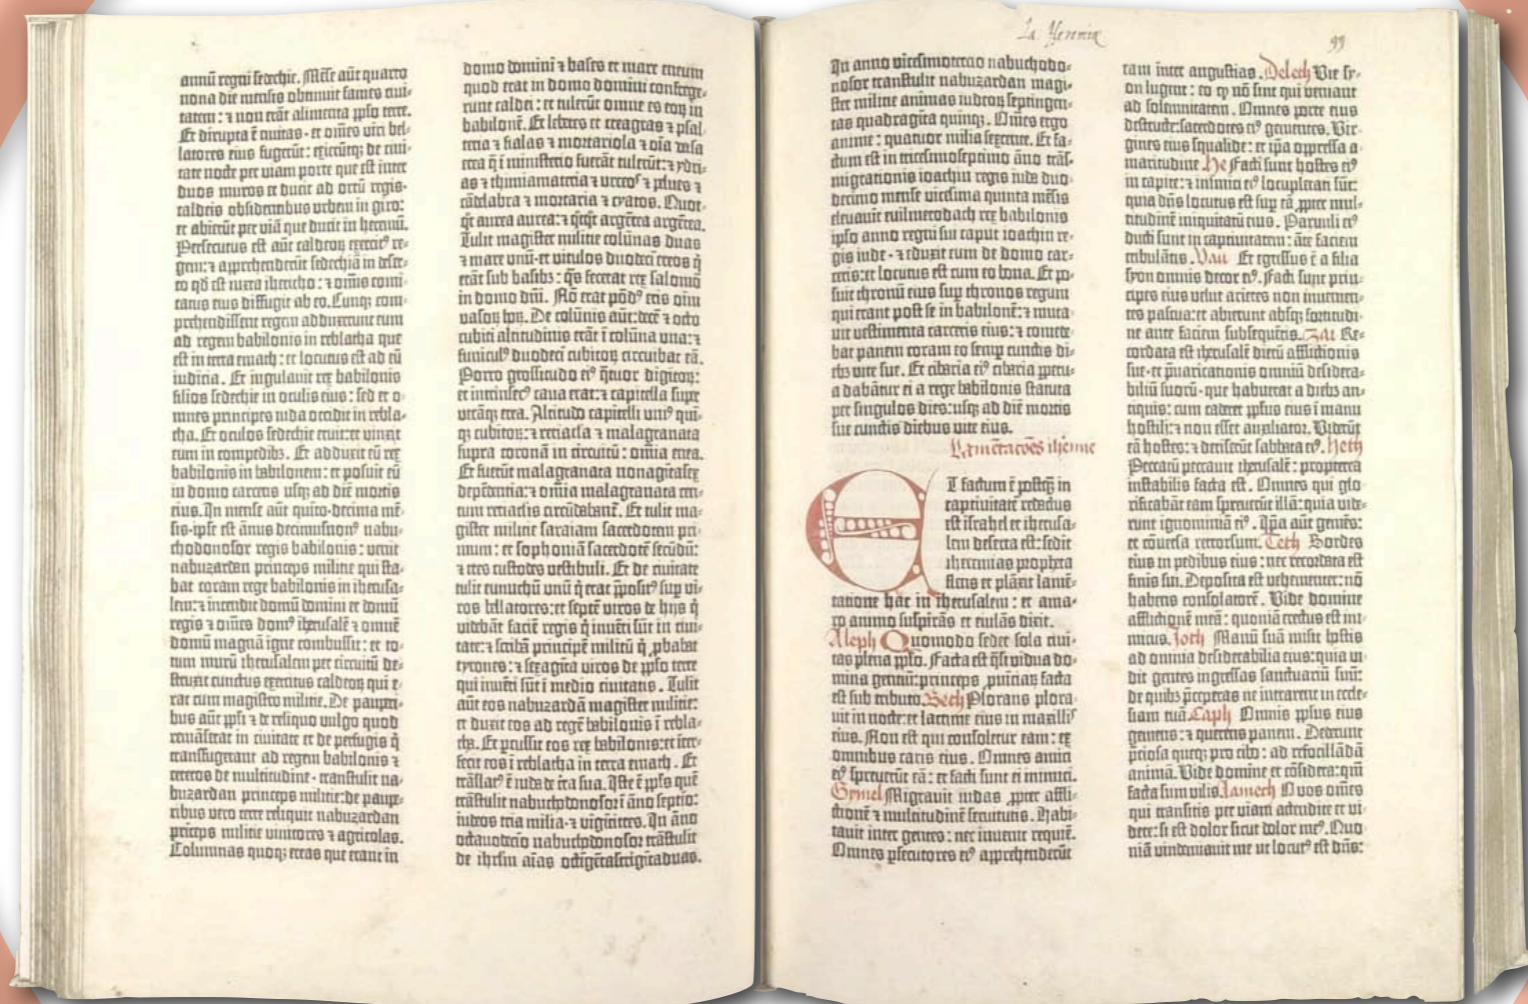 annū regni sedechie. Mēse aūt quarto
nona die mensis obtinuit fames civi-
tatem: ⁊ non erāt alimenta pplo terre.
Et dirupta ē civitas· et omēs viri bel-
latores eius fugerūt: exierūtq; de civi-
tate nocte per viam porte que est inter
duos muros et ducit ad ortū regis·
caldeis obsidentibus urbem in giro:
et abierūt per viā que ducit in heremū.
Persecutus est aūt caldeoꝝ exercitꝰ re-
gem: ⁊ apprehenderūt sedechiā in deser-
to qd est iuxta ihericho: ⁊ omnis comi-
tatus eius diffugit ab eo. Cunq; com-
prehendissent regem adduxerunt eum
ad regem babilonis in reblatha que
est in terra emath: et locutus est ad eū
iudicia. Et iugulavit rex babilonis
filios sedechie in oculis eius: sed et o-
mnes principes iuda occidit in rebla-
tha. Et oculos sedechie eruit: et vinxit
eum in compedibꝫ. Et adduxit eū rex
babilonis in babilonem: et posuit eū
in domo carceris usq; ad diē mortis
eius. In mense aūt quīto·decima mē-
sis·ipse est ānus decimusnonꝰ nabu-
chodonosor regis babilonis: venit
nabuzardan princeps militie qui sta-
bat coram rege babilonis in iherusa-
lem: ⁊ incendit domū domini et domū
regis ⁊ omēs domꝰ iherusalē ⁊ omnē
domū magnā igne combussit: et to-
tum murū iherusalem per circuitū de-
struxit cunctus exercitus caldeoꝝ qui e-
rat cum magistro militie. De pauperi-
bus aūt ppli ⁊ de reliquo vulgo quod
remāserat in civitate et de perfugis q̄
transfugerant ad regem babilonis ⁊
ceteros de multitudine· transtulit na-
buzardan princeps militie: de paupe-
ribus vero terre reliquit nabuzardan
prīceps militie vinitores ⁊ agricolas.
Columnas quoq; ereas que erant in
domo domini ⁊ bases et mare eneum
quod erat in domo domini confrege-
runt caldei: et tulerūt omne es eoꝝ in
babilonē. Et lebetes et creagras ⁊ psal-
teria ⁊ fialas ⁊ mortariola ⁊ oīa vasa
erea q̄ ī ministerio fuerāt tulerūt: ⁊ ydri-
as ⁊ thimiamateria ⁊ urceoꝰ ⁊ pelves ⁊
cādelabra ⁊ mortaria ⁊ cyatos. Quot-
q̄t aurea aurea: ⁊ q̄tq̄t argētea argētea.
Tulit magister militie colūnas duas
⁊ mare unū·et vitulos duodecī ereos q̄
erāt sub basibꝫ: q̄s fecerat rex salomō
in domo dn̄i. Nō erat pōdꝰ eris oīm
vasoꝝ hoꝝ. De colūnis aūt: decē ⁊ octo
cubiti altitudinis erāt ī colūna una: ⁊
funiculꝰ duodecī cubitoꝝ circuibat eā.
Porro grossitudo eiꝰ q̄tuor digitoꝝ:
et intrinsecꝰ cava erat: ⁊ capitella super
utrāq; erea. Altitudo capitelli uniꝰ quī-
q; cubitoꝝ: ⁊ retiacla ⁊ malagranata
supra coronā in circuitū: omīa enea.
Et fuerūt malagranata nonagītasex
depēdentia: ⁊ omīa malagranata cen-
tum retiaclis circūdabant. Et tulit ma-
gister militie saraiam sacerdotem pri-
mum: et sophoniā sacerdotē secūdū:
⁊ tres custodes vestibuli. Et de civitate
tulit eunuchū unū q̄ erat ppositꝰ sup vi-
ros bellatores: et septē viros de hijs q̄
videbāt faciē regis q̄ invēti sūt in civi-
tate: ⁊ scribā principē militū q̄ pbabat
tyrones: ⁊ sexagīta viros de pplo terre
qui invēti sūt ī medio civitatis. Tulit
aūt eos nabuzardā magister militie:
et duxit eos ad regē babilonis ī rebla-
tha. Et pcussit eos rex babilonis: et iter-
fecit eos ī reblatha in terra emath. Et
trāslatꝰ ē iuda de t̄ra sua. Iste ē ppls quē
trāstulit nabuchodonosor ī āno septīo:
iudeos tria milia·⁊ vigītitres. In āno
octavodecīo nabuchodonosor trāstulit
de ihrlm aīas octīgētastrigītaduas.
La. Yeremiæ
99
In anno vicesimotercio nabuchodo-
nosor transtulit nabuzardan magi-
ster militie animas iudeoꝝ septingen-
tas quadragīta quinq;. Omēs ergo
anime: quatuor milia sexcente. Et fa-
ctum est in tricesimoseptimo āno trās-
migrationis ioachin regis iuda duo-
decimo mense vicesima quinta mēsis
elevavit evilmerodach rex babilonis
ipso anno regni sui caput ioachin re-
gis iude· ⁊ eduxit eum de domo car-
ceris: et locutus est cum eo bona. Et po-
suit thronū eius sup thronos regum
qui erant post se in babilone: ⁊ muta-
vit vestimenta carceris eius: ⁊ comede-
bat panem coram eo semp cunctis di-
ebꝫ vite sue. Et cibaria eiꝰ cibaria ppetu-
a dabātur ei a rege babilonis statuta
per singulos dies: usq; ad diē mortis
sue cunctis diebus vite eius.
Lamētacōes iheremie
Et factum ē postq̄ in
captivitatē redactus
est israhel et iherusa-
lem deserta est: sedit
iheremias propheta
flens et plāxit lamē-
tatione hac in iherusalem: et ama-
ro animo suspirās et eiulās dixit.
Aleph Quomodo sedet sola civi-
tas plena pplo. Facta est q̄si vidua do-
mina gentiū: princeps pvinciaꝝ facta
est sub tributo. Beth Plorans plora-
vit in nocte: et lacrime eius in maxillꝭ
eius. Non est qui consoletur eam: ex
omnibus caris eius. Omnes amici
eiꝰ spreverūt eā: et facti sunt ei inimici.
Gymel Migravit iudas ppter affli-
ctionē ⁊ multitudinē servitutis. Habi-
tavit inter gentes: nec invenit requiē.
Omnes psecutores eiꝰ apprehenderūt
eam inter angustias. Deleth Vie sy-
on lugent: eo q̄ nō sint qui veniant
ad solemnitatem. Omnes porte eius
destructe: sacerdotes eiꝰ gementes. Vir-
gines eius squalide: et ipa oppressa a-
maritudine. He Facti sunt hostes eiꝰ
in capite: ⁊ inimici eiꝰ locupletati sūt:
quia dn̄s locutus est sup eā ppter mul-
titudinē iniquitatū eius. Parvuli eiꝰ
ducti sunt in captivitatem: āte faciem
tribulātis. Vau Et egressus ē a filia
syon omnis decor eiꝰ. Facti sunt prin-
cipes eius velut arietes non invenien-
tes pascua: et abierunt absq; fortitudi-
ne ante faciem subsequētis. Zai Re-
cordata est iherusalē dierū afflictionis
sue·et p̄varicationis omniū desidera-
biliū suorū· que habuerat a diebꝫ an-
tiquis: cum caderet pplus eius ī manu
hostili: ⁊ non esset auxiliator. Viderūt
eā hostes: ⁊ deriserūt sabbata eiꝰ. Heth
Peccatū peccavit iherusalē: propterea
instabilis facta est. Omnes qui glo-
rificabāt eam spreverūt illā: quia vide-
runt ignominiā eiꝰ. Ip̄a aūt gemēs:
et cōversa retrorsum. Teth Sordes
eius in pedibus eius: nec recordata est
finis sui. Deposita est vehementer: nō
habens consolatorē. Vide domine
afflictionē meā: quoniā erectus est ini-
micus. Joth Manū suā misit hostis
ad omnia desiderabilia eius: quia vi-
dit gentes ingressas sanctuariū suū:
de quibꝫ p̄ceperas ne intrarent in eccle-
siam tuā. Caph Omnis pplus eius
gemens: ⁊ querens panem. Dederunt
p̄ciosa queq; pro cibo: ad refocillādā
animā. Vide domine et cōsidera: qm̄
facta sum vilis. Lamech O vos omēs
qui transitis per viam attendite et vi-
dete: si est dolor sicut dolor meꝰ. Quo-
niā vindemiavit me ut locutꝰ est dn̄s: